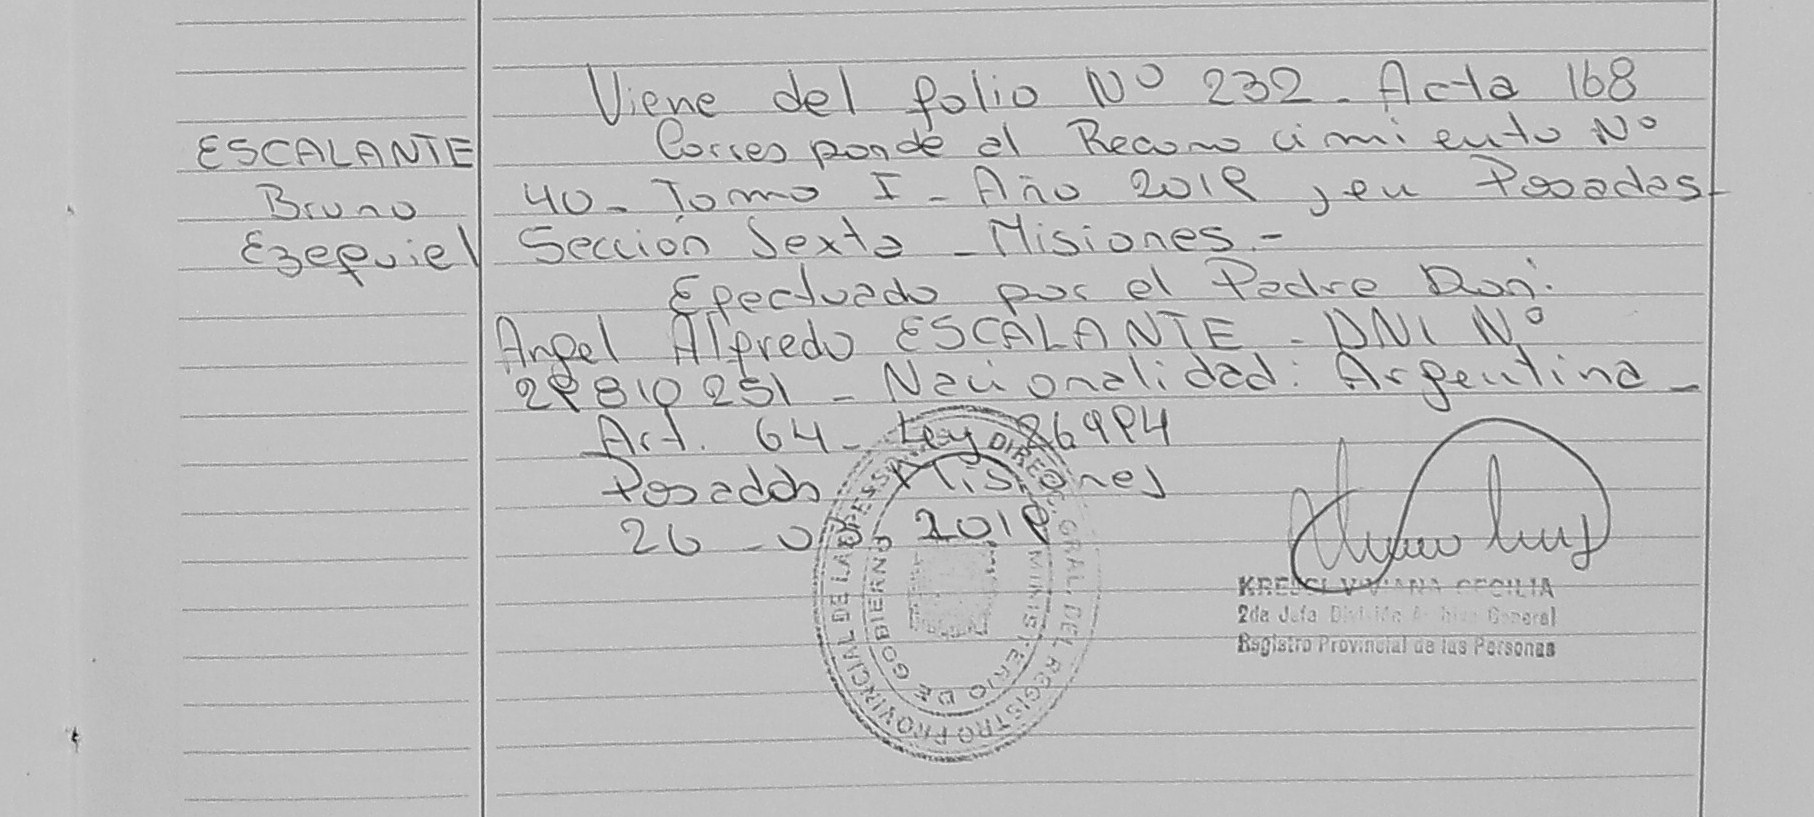 Viene del folio Nº 232 - Acta 168
ESCALANTE
Bruno
Ezequiel
Corresponde al Reconocimiento Nº
40 - Tomo I - Año 2019, en Posadas -
Sección Sexta - Misiones.-
Efectuado por el Padre Don:
Angel Alfredo ESCALANTE - DNI Nº
29810251 - Nacionalidad: Argentina -
Art. 64 - Ley 26994
Posadas Misiones
26 - 03 - 2019
DIREC. GRAL. DEL REGISTRO PROVINCIAL DE LAS PERSONAS
MINISTERIO DE GOBIERNO
CECILIA
2da Jefa División Archivo General
Registro Provincial de las Personas